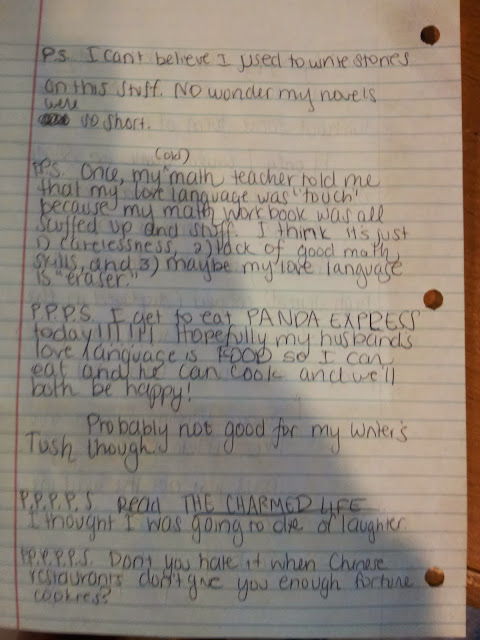 P.S. I can't believe I used to write stories
on this stuff. NO wonder my novels
were
so short.
(old)
PPS. Once, my ^ math teacher told me
that my love language was "touch"
because my math workbook was all
scuffed up and stuff. I think it's just
1) carelessness, 2) lack of good math
skills, and 3) maybe my love language
is "eraser."
P.P.P.S. I get to eat PANDA EXPRESS
today!!!!!!! Hopefully my husbands
love language is FOOD so I can
eat and he can cook and we'll
both be happy!
Probably not good for my writer's
Tush though
P.P.P.P.S Read THE CHARMED LIFE
I thought I was going to die of laughter.
P.P.P.P.P.S. Don't you hate it when Chinese
restaurants don't give you enough fortune
cookies?